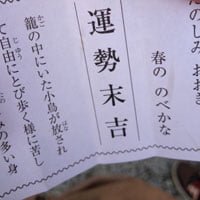 のしみ おおき
春の のべかな
運勢末吉
籠の中にいた小鳥が放され
て自由にとび歩く様に苦し
みの多い身